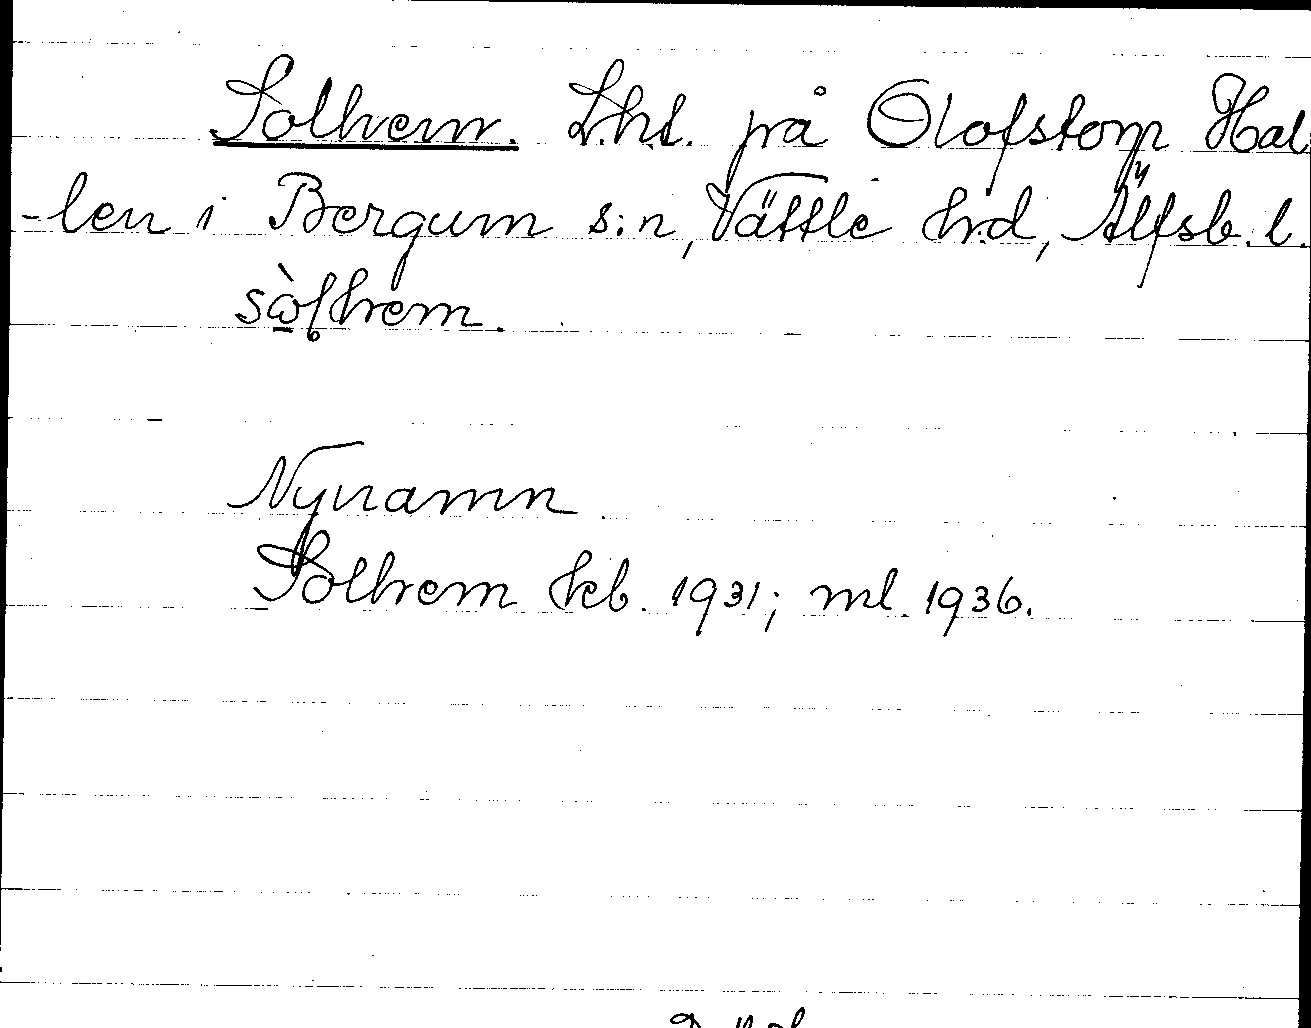 Solhem. Lht. på Olofstorp Hal
-len i Bergum s:n, Vättle hd, Älfsb. l.
sòlhem.
Nynamn
Solhem kb. 1931; ml. 1936.